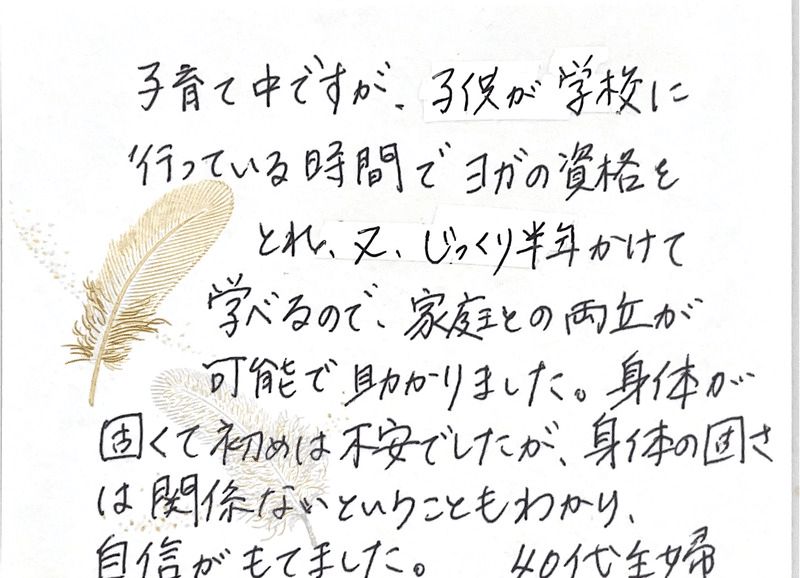 子育て中ですが、子供が学校に
行っている時間でヨガの資格を
とれ、又、じっくり半年かけて
学べるので、家庭との両立が
可能で助かりました。身体が
固くて初めは不安でしたが、身体の固さ
は関係ないということもわかり、
自信がもてました。 40代主婦